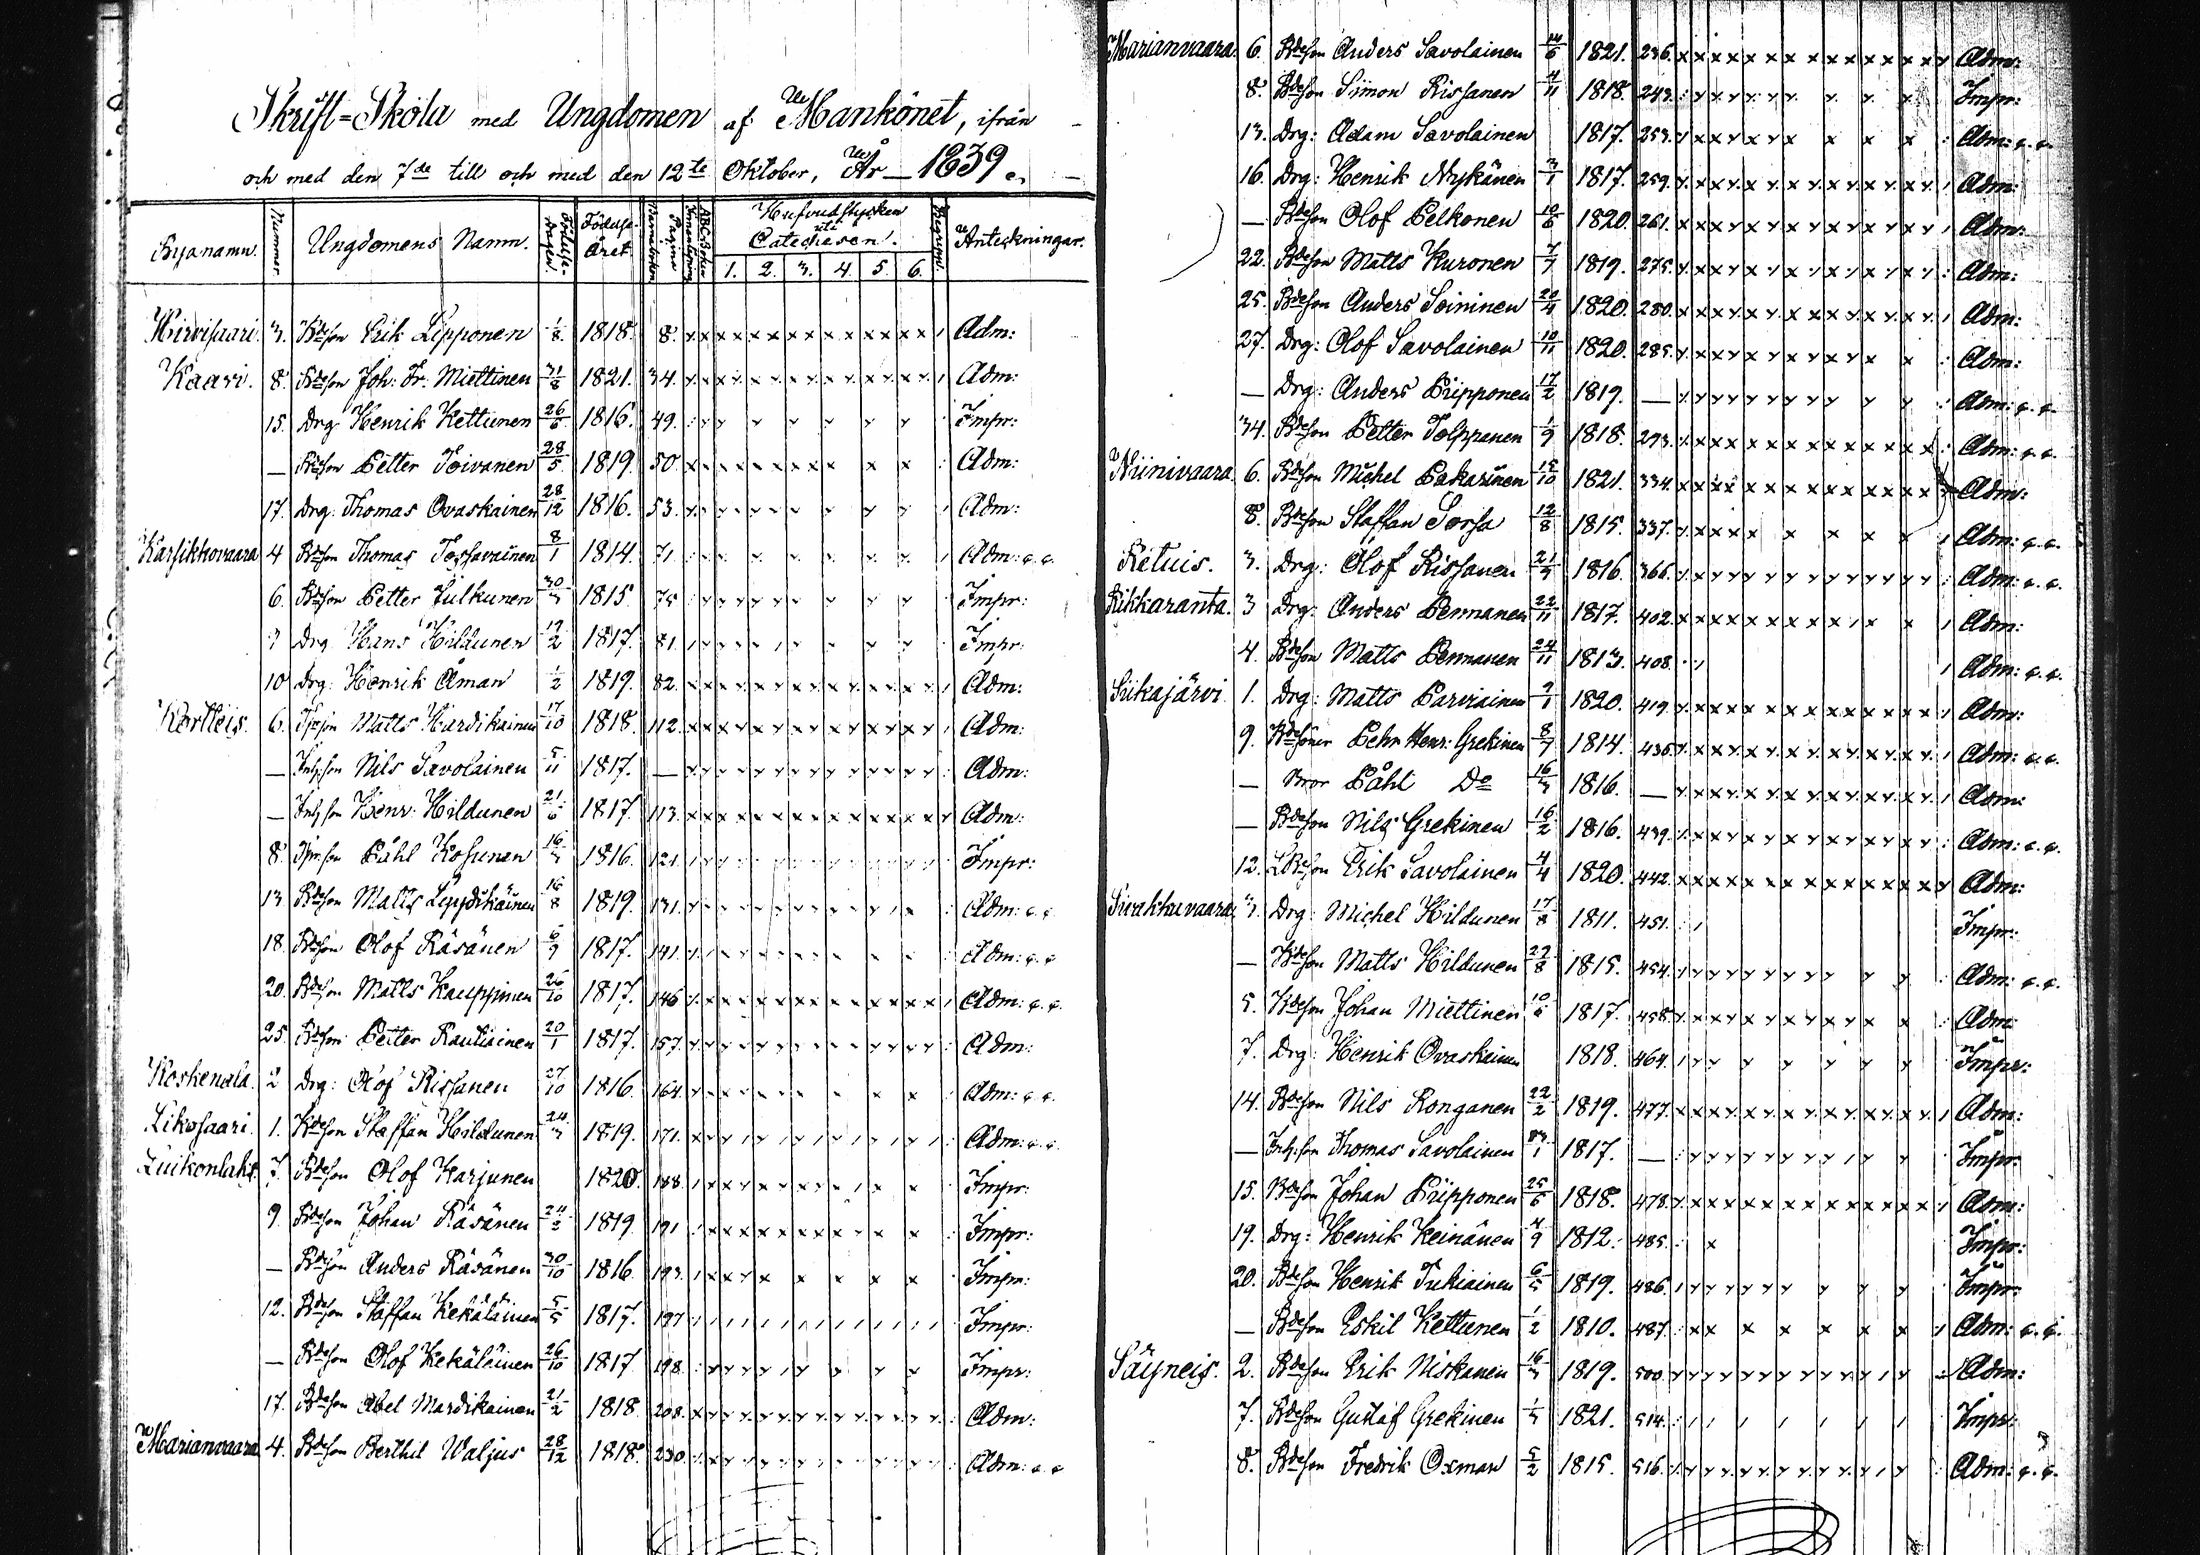 Skrift-Skola med Ungdomen af Mankönet, ifrån
och med den 7de till och med den 12te Oktober, År 1839.
Byanamn. Nummer. Ungdomens Namn. Födelse-dagen. Födelse-Året Pagina ABC-Boken Hufvudstycken uti Catechesen. Begreppet. Anteckningar.
1. 2. 3. 4. 5. 6.
Hirvisaari. 3. Bdeson Erik Lipponen 1/8 1818. 8. Adm:
Kaavi. 8. Bdeson Joh: Fr: Miettinen 31/8 1821. 34. Adm:
15. Drg: Henrik Kettunen 26/6 1816. 49. Impr:
— Bdeson Petter Toivanen 28/5 1819. 50. Adm:
17. Drg: Thomas Ovaskainen 28/12 1816. 53. Adm:
Karsikkovaara 4 Bdeson Thomas Tossavainen 8/1 1814 71. Adm: c. c.
6. Bdeson Petter Julkunen 1815 75 Impr:
Drg Hans Hildunen 1817. 81. Impr:
10 Drg: Henrik Åman 1/2 1819. 82. Adm:
Kortteis. 6. Matts Mardikainen 17/10 1818. 112. Adm:
— Inh. son Nils Savolainen 5/11 1817. — Adm:
— Inh. son Henr: Hildunen 21/6 1817. 113. Adm:
8. Påhl Kosunen 1816. 121. Impr:
13. Bdeson Matts Leppikäinen 16/8 1819. 131. Adm: c. c.
18. Bdeson Olof Räsänen 6/9 1817. 141. Adm: c. c.
20. Bdeson Matts Kauppinen 26/10 1817. 146 Adm: c. c.
25. Bdeson Petter Rautiainen 20/1 1817. 157. Adm:
Koskenala. 2 Drg: Olof Rissanen 27/10 1816. 164. Adm: c. c.
Likosaari. 1. Bdeson Staffan Hildunen 1819. 171. Adm: c. c.
Luikonlaks. 7. Bdeson Olof Karjunen 1820. 188. Impr:
9. Bdeson Johan Räsänen 24/2 1819. 191 Impr:
— Bdeson Anders Räsänen 30/10 1816. 193. Impr:
12. Bdeson Staffan Kekäläinen 5/5 1817. 197 Impr:
— Bdeson Olof Kekäläinen 26/10 1817. 198. Impr:
17. Bdeson Abel Mardikainen 21/2 1818. 208. Adm:
Marianvaara 4. Bdeson Berthil Waljus 28/12 1818. 230. Adm: c. c.
Marianvaara. 6. Bdeson Anders Savolainen 14/6 1821. 236. Adm:
8. Bdeson Simon Rissanen 4/11 1818. 243. Impr:
13. Drg: Adam Savolainen 1817. 253. Adm: c. c.
16. Drg: Henrik Nykänen 3/1 1817. 259. Adm:
— Bdeson Olof Pelkonen 10/6 1820. 261. Adm:
22. Bdeson Matts Kuronen 7/7 1819. 275. Adm:
25. Bdeson Anders Soininen 20/4 1820. 280. Adm:
27. Drg: Olof Savolainen 10/11 1820. 285. Adm:
— Drg: Anders Pripponen 17/2 1819. — Adm: c. c.
34. Bdeson Petter Tolppanen 1/9 1818. 293. Adm: c. c.
Niinivaara 6. Bdeson Michel Pakarinen 15/10 1821. 334. Adm:
8. Bdeson Staffan Sorsa 12/8 1815. 337. Adm: c. c.
Retuis. 3. Drg: Olof Rissanen 1816. 366. Adm: c. c.
Rikkaranta. 3 Drg: Anders Pennanen 22/11 1817. 402. Adm:
4. Bdeson Matts Pennanen 24/11 1813. 408. Adm: c. c.
Siikajärvi 1. Drg: Matts Parviainen 9/1 1820. 419. Adm:
9. Bdesöner Pehr Henr: Grekinen 8/7 1814. 436. Adm: c. c.
— Bror Påhl Do 1816. — Adm:
— Bdeson Nils Grekinen 16/2 1816. 439. Adm: c. c.
12. Erik Savolainen 4/4 1820. 442. Adm:
Sivakkavaara 3. Drg: Michel Hildunen 17/8 1811. 451. Impr:
— Bdeson Matts Hildunen 1815. 454. Adm: c. c.
5. Bdeson Johan Miettinen 1817. 458. Adm:
7. Drg: Henrik Ovaskainen 1818. 464. Impr:
14. Bdeson Nils Ronganen 22/2 1819. 477. Adm:
— Inh: son Thomas Savolainen 1817. — Impr:
15. Bdeson Johan Pripponen 25/6 1818. 478. Adm:
19. Drg: Henrik Keinänen 4/9 1812. 485. Impr:
20. Bdeson Henrik Tukiainen 6/5 1819. 486. Impr:
— Bdeson Eskil Kettunen 1/2 1810. 487. Adm: c. c.
Säyneis. 2. Bdeson Erik Niskanen 1819. 500. Adm:
7. Bdeson Gustaf Grekinen 1821. 514. Impr:
8. Bdeson Fredrik Oxman 5/2 1815. 516. Adm: c. c.